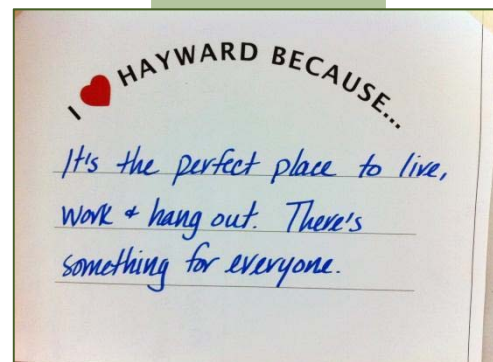 I ❤ HAYWARD BECAUSE...
It's the perfect place to live,
work & hang out. There's
something for everyone.